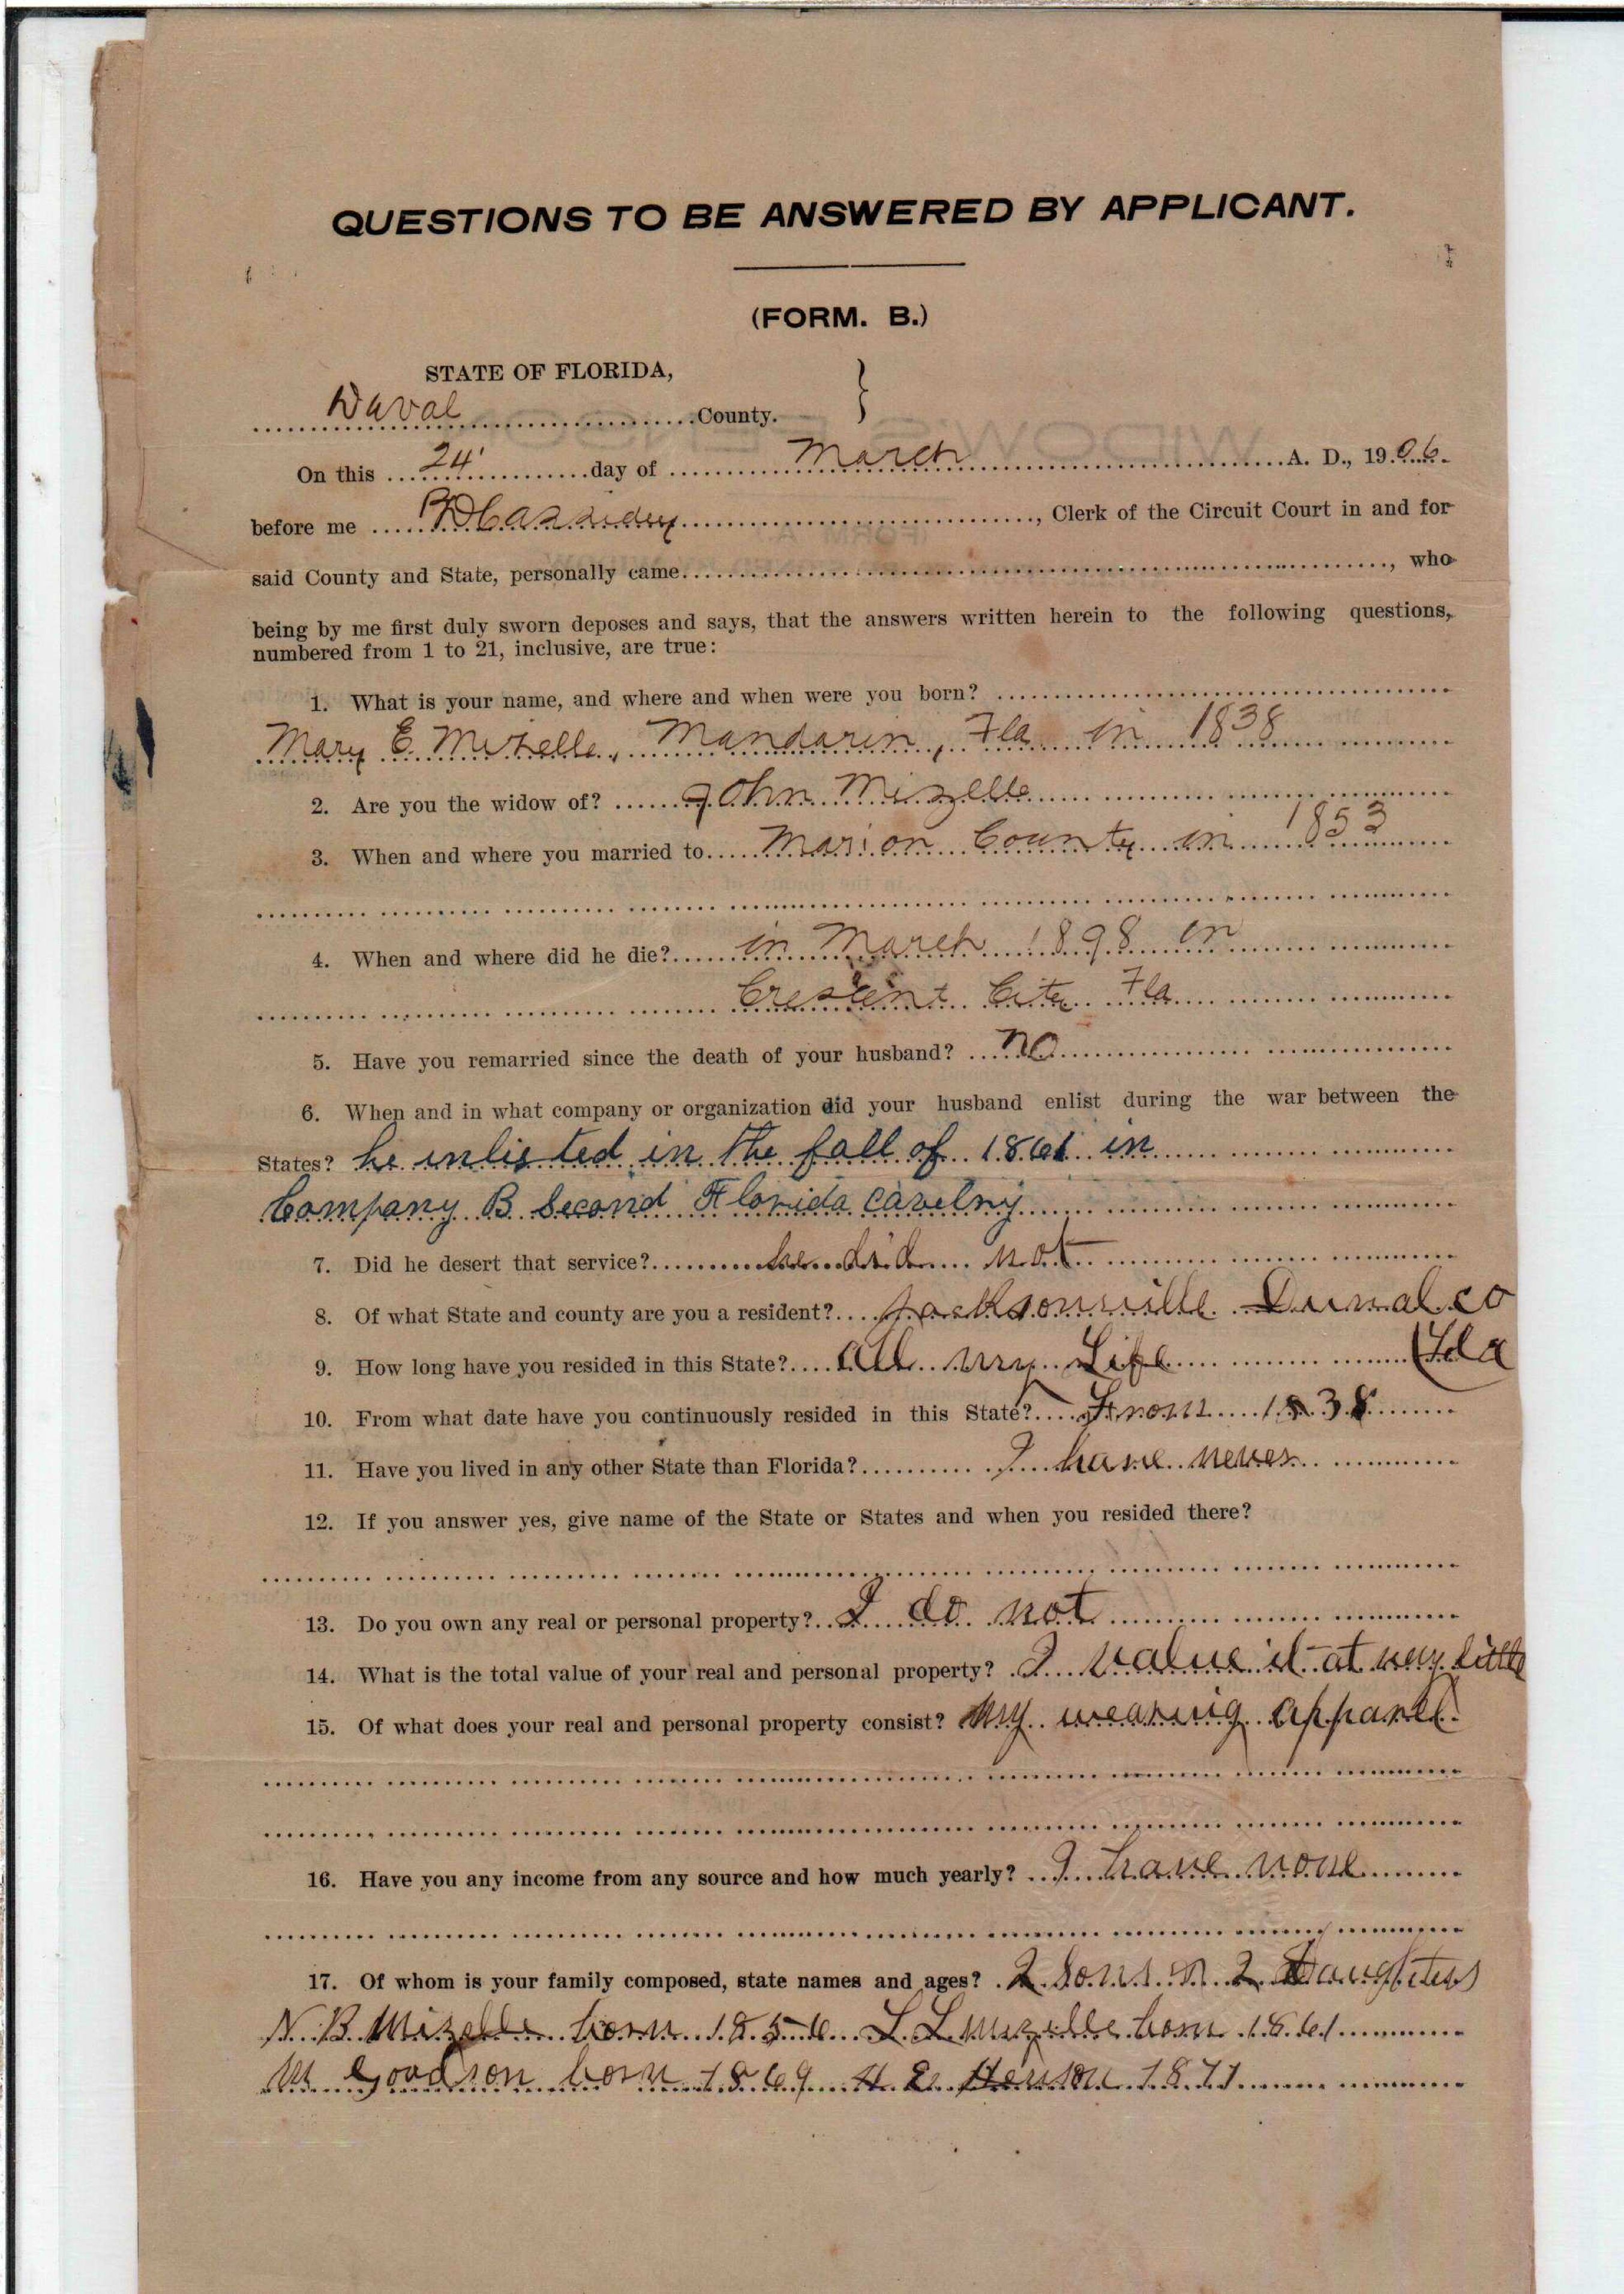 QUESTIONS TO BE ANSWERED BY APPLICANT.
(FORM. B.)
STATE OF FLORIDA,
Duval County.
On this 24 day of March A. D., 1906.
before me PD Cassidey, Clerk of the Circuit Court in and for
said County and State, personally came, who
being by me first duly sworn deposes and says, that the answers written herein to the following questions,
numbered from 1 to 21, inclusive, are true:
1. What is your name, and where and when were you born?
Mary E. Mizelle, Mandarin, Fla in 1838
2. Are you the widow of? John Mizelle
3. When and where you married to Marion County in 1853
4. When and where did he die? in March 1898 in
Crescent City Fla
5. Have you remarried since the death of your husband? no
6. When and in what company or organization did your husband enlist during the war between the
States? he inlisted in the fall of 1861 in
Company B Second Florida Cavelry
7. Did he desert that service? he did not
8. Of what State and county are you a resident? Jacksonville Duval co
9. How long have you resided in this State? All my Life (Fla
10. From what date have you continuously resided in this State? From 1838
11. Have you lived in any other State than Florida? I have never
12. If you answer yes, give name of the State or States and when you resided there?
13. Do you own any real or personal property? I do not
14. What is the total value of your real and personal property? I value it at very little
15. Of what does your real and personal property consist? My wearing apparel
16. Have you any income from any source and how much yearly? I have none
17. Of whom is your family composed, state names and ages? 2 Sons 2 Daughters
N. B. Mizelle born 1856 L L Mizelle born 1861
M Goodson born 1869 1871